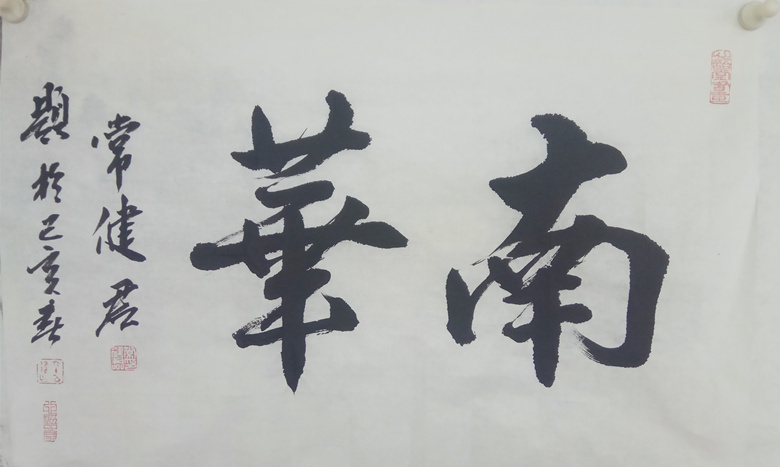 南華
常健君
題於己亥春